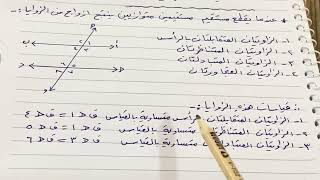 * عندما يقطع مستقيم مستقيمين متوازيين ينتج أزواج من الزوايا :-
١- الزاويتان المتقابلتان بالرأس
٢- الزاويتان المتناظرتان
٣- الزاويتان المتبادلتان
٤- الزاويتان
∴ قياسات هذه الزوايا :-
١- الزاويتان المتقابلتان بالرأس متساوية بالقياس ق∠١ = ق∠٤
٢- الزاويتان المتناظرتان متساوية بالقياس ق∠١ = ق∠٥
٣- الزاويتان المتبادلتان متساوية بالقياس ق∠٣ = ق∠٦